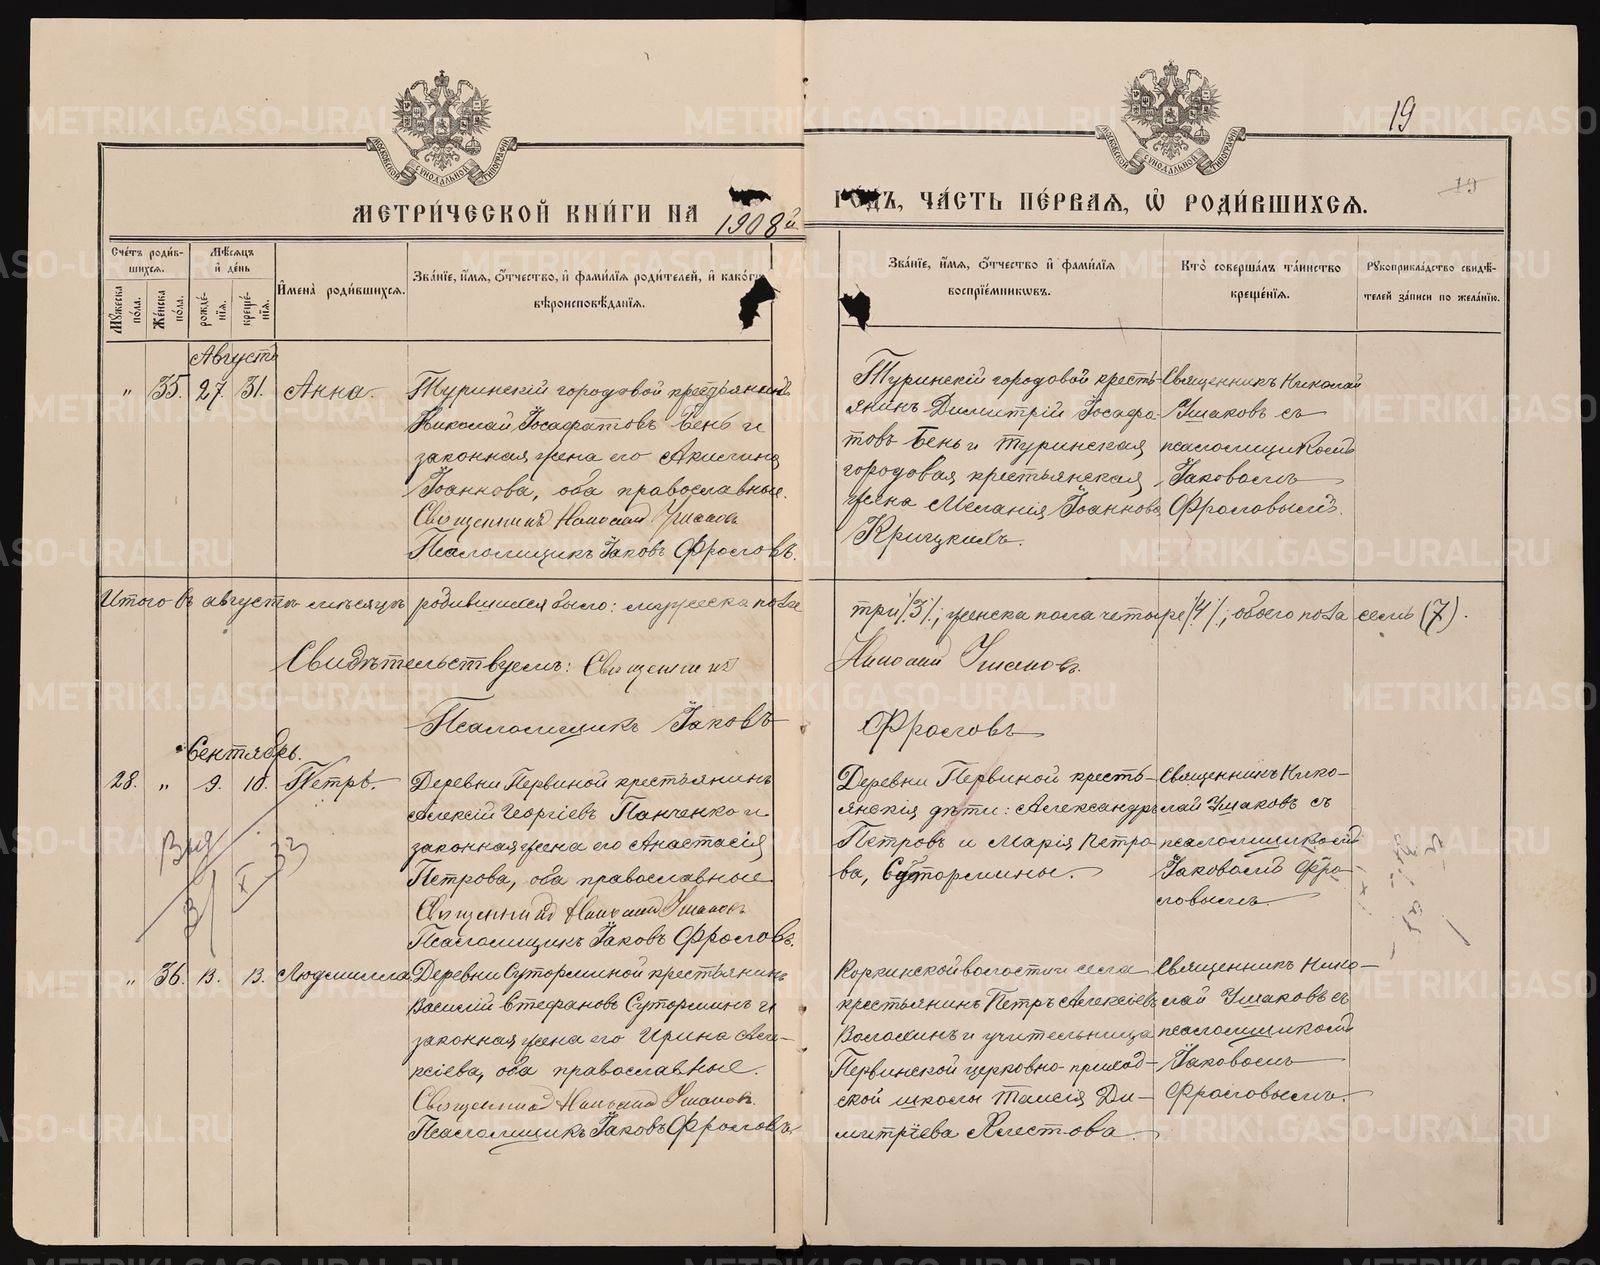 19
19
МЕТРИ́ЧЕСКОЙ КНИ́ГИ НА 1908й ГОДЪ, ЧА́СТЬ ПЕ́РВАЯ, Ѽ РОДИ́ВШИХСЯ.
Сче́тъ роди́в-
шихся.
Мѣ́сяцъ
и҆ де́нь
Мꙋ́жеска по́ла.
Же́нска по́ла.
рожде́-
нїѧ.
креще́-
нїѧ.
И҆мена̀ роди́вшихся.
Зва́нїе, и҆́мя, ѻ҆́тчество, и҆ фами́лїя роди́телей, и҆ како́гѡ
вѣроисповѣ́данїя.
Зва́нїе, и҆́мя, ѻ҆́тчество и҆ фами́лїя
воспрїе́мниковъ.
Кто̀ соверша́лъ та́инство
креще́нїя.
Рꙋкоприкла́дство свидѣ́-
телей за́писи по жела́нїю.
Августъ
„ 35. 27. 31. Анна.
Туринскій городовой крестьянинъ
Николай Іосафатовъ Бень и
законная жена его Акилина
Іоаннова, оба православные.
Священникъ Николай Ушаковъ
Псаломщикъ Іаковъ Фроловъ.
Туринскій городовой кресть-
янинъ Димитрій Іосафа-
товъ Бень и туринская
городовая крестьянская
жена Меланія Іоаннова
Крицкихъ.
Священникъ Николай
Ушаковъ съ
псаломщикомъ
Іаковомъ
Фроловымъ.
Итого въ августѣ мѣсяцѣ родившихся было: мужеска пола три /3/; женска пола четыре /4/; обоего пола семь (7).
Свидѣтельствуемъ: Священникъ Николай Ушаковъ.
Псаломщикъ Іаковъ Фроловъ
Сентябрь.
28. „ 9. 10. Петръ.
Деревни Первиной крестьянинъ
Алексій Георгіевъ Панченко и
законная жена его Анастасія
Петрова, оба православные
Священникъ Николай Ушаковъ
Псаломщикъ Іаковъ Фроловъ.
Деревни Первиной кресть-
янскія дѣти: Александръ
Петровъ и Марія Петро-
ва, Сутормины.
Священникъ Нико-
лай Ушаковъ съ
псаломщикомъ
Іаковомъ Фро-
ловымъ.
„ 36. 13. 13. Людмилла
Деревни Суторминой крестьянинъ
Василій Стефановъ Суторминъ и
законная жена его Ирина Але-
ксіева, оба православные.
Священникъ Николай Ушаковъ.
Псаломщикъ Іаковъ Фроловъ.
Коркинской волости и села
крестьянинъ Петръ Алексіевъ
Волохинъ и учительница
Первинской церковно-приход-
ской школы Таисія Ди-
митріева Хлестова.
Священникъ Нико-
лай Ушаковъ съ
псаломщикомъ
Іаковомъ
Фроловымъ.
METRIKI.GASO-URAL.RU